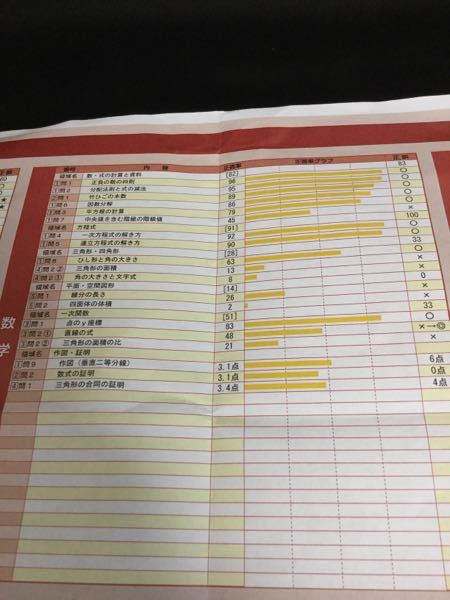 番号 内 容 正答率 正答率グラフ 正誤
領域名 数・式の計算と資料 [82] 83
①問1 正負の数の四則 96 ○
①問2 分配法則と式の減法 95 ○
②問1 竹ひごの本数 89 ○
①問6 因数分解 86 ○
①問3 平方根の計算 79 ○
①問7 中央値を含む階級の階級値 45 ×
領域名 方程式 [91] 100
①問4 一次方程式の解き方 92 ○
①問5 連立方程式の解き方 90 ○
領域名 三角形・四角形 [28] 33
①問8 ひし形と角の大きさ 63 ○
④問2② 三角形の面積 13 ×
④問2① 角の大きさと文字式 8 ×
領域名 平面・空間図形 [14] 0
⑤問1 線分の長さ 26 ×
⑤問2 四面体の体積 2 ×
領域名 一次関数 [51] 33
③問1 点のy座標 83 ○
③問2① 直線の式 48 ×→◎
③問2② 三角形の面積の比 21 ×
領域名 作図・証明
①問9 作図(垂直二等分線) 3.1点 6点
②問2 数式の証明 3.1点 0点
④問1 三角形の合同の証明 3.4点 4点
数学